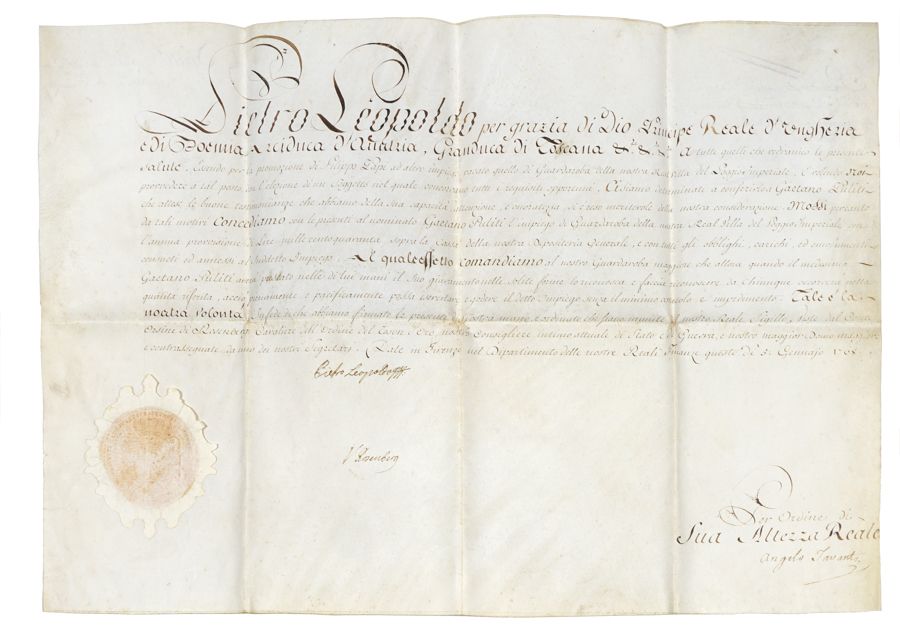 Pietro Leopoldo per grazia di Dio Principe Reale d'Ungheria
e di Boemia Arciduca d'Austria, Granduca di Toscana &c. &c. &c. A tutti quelli che vedranno le presenti
salute. Essendo per la promozione di Filippo Papi ad altro impiego quello di Guardaroba della nostra Real Villa del Poggio Imperiale, e volendo Noi
provvedere a tal posto con l'elezione d'un Soggetto nel quale concorrano tutti i requisiti opportuni, Ci siamo determinati a conferirlo a Gaetano Puliti
che attese le buone testimonianze che abbiamo della Sua capacità, attenzione, e onoratezza, si è reso meritevole della nostra considerazione. Mossi pertanto
da tali motivi Concediamo con le presenti al nominato Gaetano Puliti l'impiego di Guardaroba della nostra Real Villa del Poggio Imperiale con
l'annua provvisione di Lire mille centoquaranta sopra la Cassa della nostra Depositeria Generale, e con tutti gli obblighi, carichi, ed
connessi ed annessi al Suddetto Impiego. Al quale effetto comandiamo al nostro Guardaroba maggiore che allora quando il medesimo
Gaetano Puliti avrà prestato nelle di lui mani il Suo giuramento nelle solite forme lo riconosca e faccia riconoscere da chiunque occorra nella
qualità riferita, acciò pienamente e pacificamente possa esercitare e godere il detto Impiego senza il minimo ostacolo e impedimento. Tale è la
nostra volontà. In fede di che abbiamo firmate le presenti di nostra mano e ordinato che siano munite del nostro Reale Sigillo, viste dal Conte
Orsini di Rosenberg Cavaliere dell'Ordine del Toson d'Oro nostro Consigliere intimo attuale di Stato e di Guerra, e nostro maggior Domo maggiore
e contrassegnate da uno dei nostri Segretari. Date in Firenze nel Dipartimento delle nostre Reali Finanze questo dì 5. Gennajo
Pietro Leopoldo
V. Rosenberg
Per Ordine di
Sua Altezza Reale
Angelo Tavanti